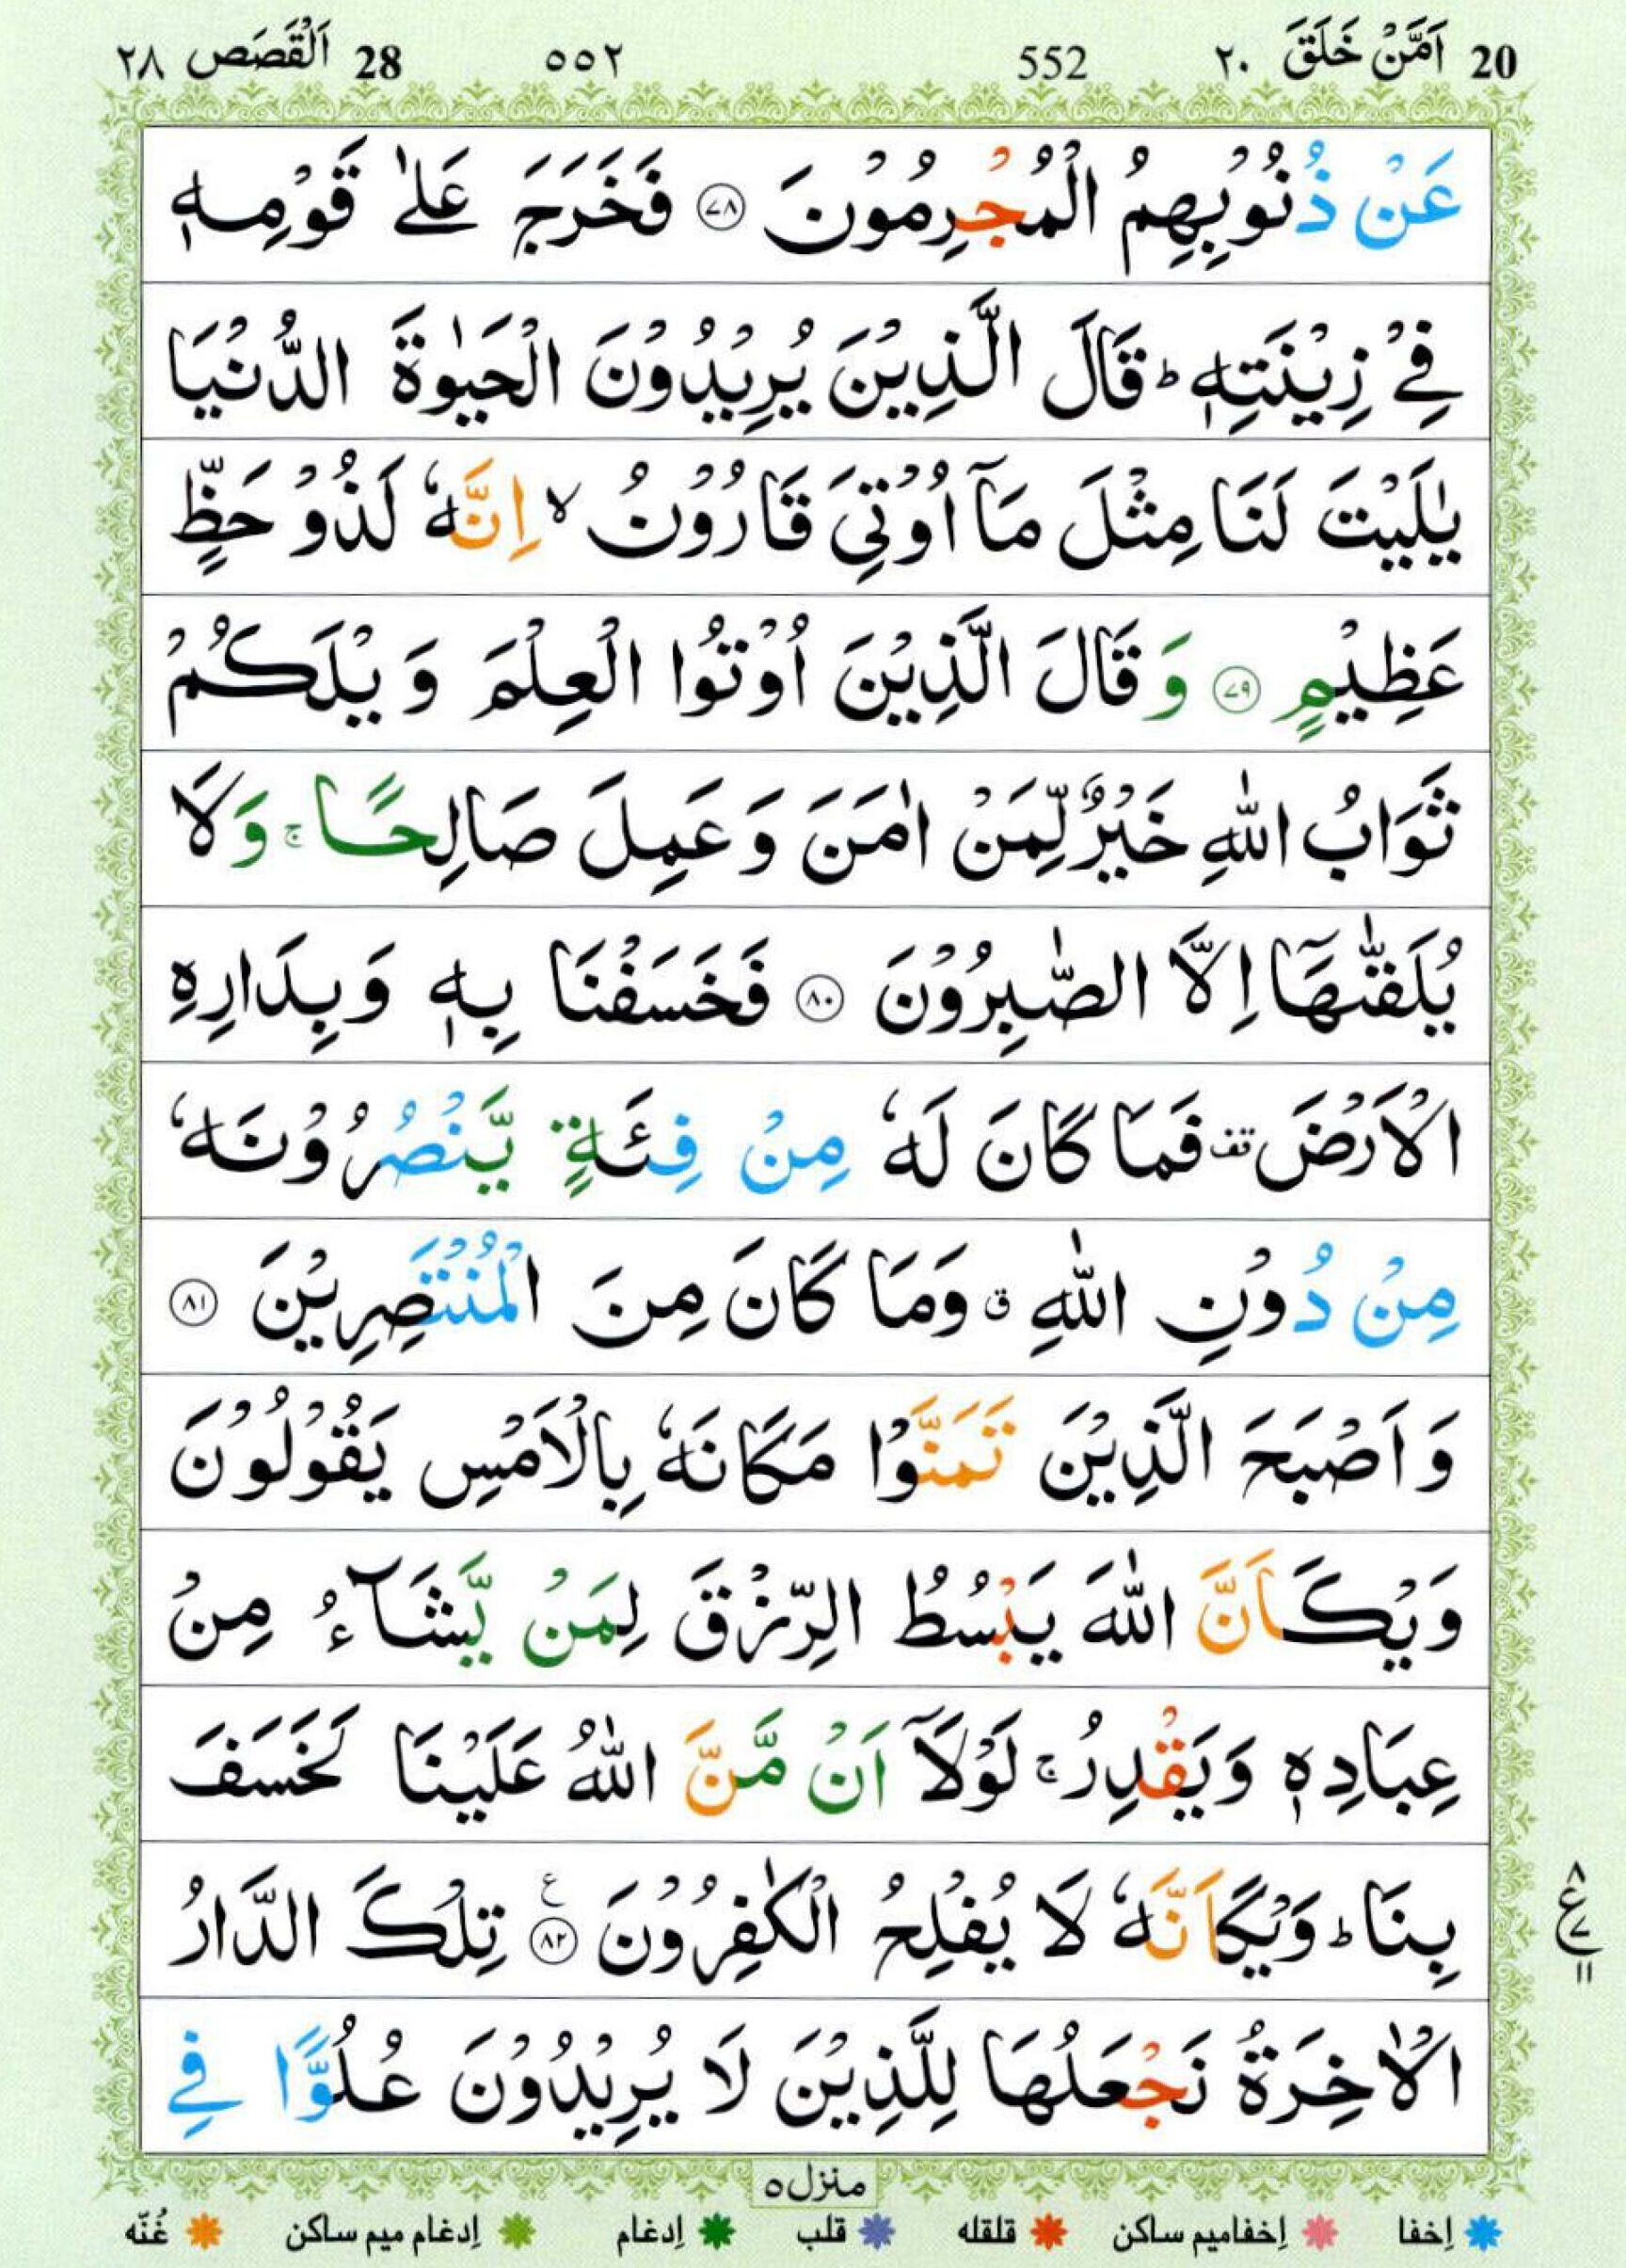 20 اَمَّنْ خَلَقَ ٢٠ 552 ٥٥٢ 28 اَلْقَصَص ٢٨
عَنْ ذُنُوْبِهِمُ الْمُجْرِمُوْنَ ۝٧٨ فَخَرَجَ عَلٰى قَوْمِهٖ
فِيْ زِيْنَتِهٖ ؕ قَالَ الَّذِيْنَ يُرِيْدُوْنَ الْحَيٰوةَ الدُّنْيَا
يٰلَيْتَ لَنَا مِثْلَ مَاۤ اُوْتِيَ قَارُوْنُ ۙ اِنَّهٗ لَذُوْ حَظٍّ
عَظِيْمٍ ۝٧٩ وَ قَالَ الَّذِيْنَ اُوْتُوا الْعِلْمَ وَيْلَكُمْ
ثَوَابُ اللّٰهِ خَيْرٌ لِّمَنْ اٰمَنَ وَ عَمِلَ صَالِحًا ۚ وَ لَا
يُلَقّٰىهَاۤ اِلَّا الصّٰبِرُوْنَ ۝٨٠ فَخَسَفْنَا بِهٖ وَ بِدَارِهِ
الْاَرْضَ ࣞ فَمَا كَانَ لَهٗ مِنْ فِئَةٍ يَّنْصُرُوْنَهٗ
مِنْ دُوْنِ اللّٰهِ ۗ وَمَا كَانَ مِنَ الْمُنْتَصِرِيْنَ ۝٨١
وَ اَصْبَحَ الَّذِيْنَ تَمَنَّوْا مَكَانَهٗ بِالْاَمْسِ يَقُوْلُوْنَ
وَيْكَاَنَّ اللّٰهَ يَبْسُطُ الرِّزْقَ لِمَنْ يَّشَآءُ مِنْ
عِبَادِهٖ وَيَقْدِرُ ۚ لَوْلَاۤ اَنْ مَّنَّ اللّٰهُ عَلَيْنَا لَخَسَفَ
بِنَا ؕ وَيْكَاَنَّهٗ لَا يُفْلِحُ الْكٰفِرُوْنَ ۝٨٢ ع تِلْكَ الدَّارُ
٨ ع ٧ ١١
الْاٰخِرَةُ نَجْعَلُهَا لِلَّذِيْنَ لَا يُرِيْدُوْنَ عُلُوًّا فِي
منزل ٥
إخفا إخفامیم ساکن قلقله قلب إدغام إدغام میم ساکن غُنّه